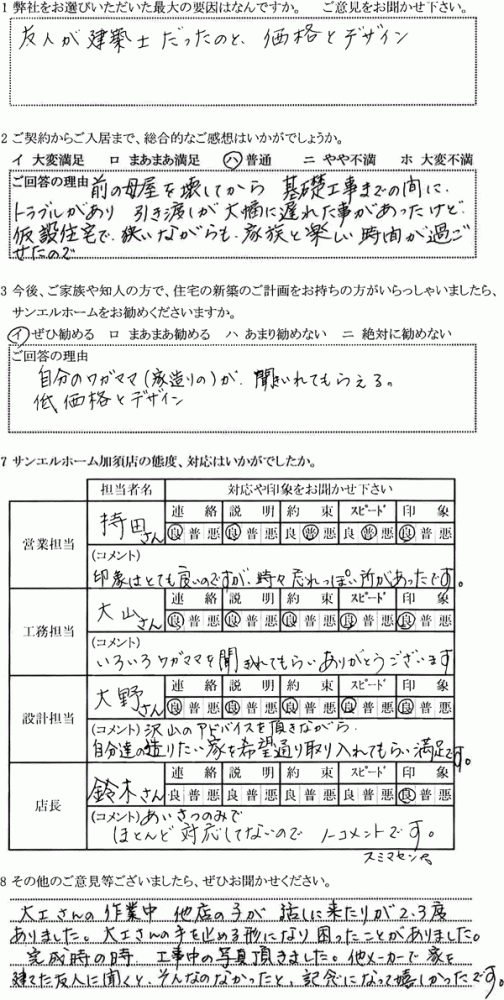 1 弊社をお選びいただいた最大の要因はなんですか。　ご意見をお聞かせ下さい。
友人が建築士だったのと、価格とデザイン
2 ご契約からご入居まで、総合的なご感想はいかがでしょうか。
イ 大変満足　ロ まあまあ満足　ハ 普通　ニ やや不満　ホ 大変不満
ご回答の理由 前の母屋を壊してから 基礎工事までの間に、
トラブルがあり 引き渡しが大幅に遅れた事があったけど、
仮設住宅で、狭いながらも、家族と楽しい時間が過ご
せたので
3 今後、ご家族や知人の方で、住宅の新築のご計画をお持ちの方がいらっしゃいましたら、
サンエルホームをお勧めくださいますか。
イ ぜひ勧める　ロ まあまあ勧める　ハ あまり勧めない　ニ 絶対に勧めない
ご回答の理由
自分のワガママ(家造りの)が、聞きいれてもらえる。
低価格とデザイン
7 サンエルホーム加須店の態度、対応はいかがでしたか。
担当者名　対応や印象をお聞かせ下さい
営業担当　持田さん　連絡　説明　約束　スピード　印象
良 普 悪　良 普 悪　良 普 悪　良 普 悪　良 普 悪
(コメント)
印象はとても良いのですが、時々だれっぽい所があったです。
工務担当　大山さん　連絡　説明　約束　スピード　印象
良 普 悪　良 普 悪　良 普 悪　良 普 悪　良 普 悪
(コメント)
いろいろワガママを聞き入れてもらいありがとうございます
設計担当　大野さん　連絡　説明　約束　スピード　印象
良 普 悪　良 普 悪　良 普 悪　良 普 悪　良 普 悪
(コメント) 沢山のアドバイスを頂きながら、
自分達の造りたい家を希望通り取り入れてもらい満足です。
店長　鈴木さん　連絡　説明　約束　スピード　印象
良 普 悪　良 普 悪　良 普 悪　良 普 悪　良 普 悪
(コメント) あいさつのみで
ほとんど対応してないので ノーコメントです。
スミマセン
8 その他のご意見等ございましたら、ぜひお聞かせください。
大工さんの作業中 他店の子が 話しに来たりが2.3度
ありました。大工さんの手を止める形になり困ったことがありました。
完成時の時 工事中の写真頂きました。他メーカーで家を
建てた友人に聞くと、そんなのなかったと、記念になって嬉しかったです。